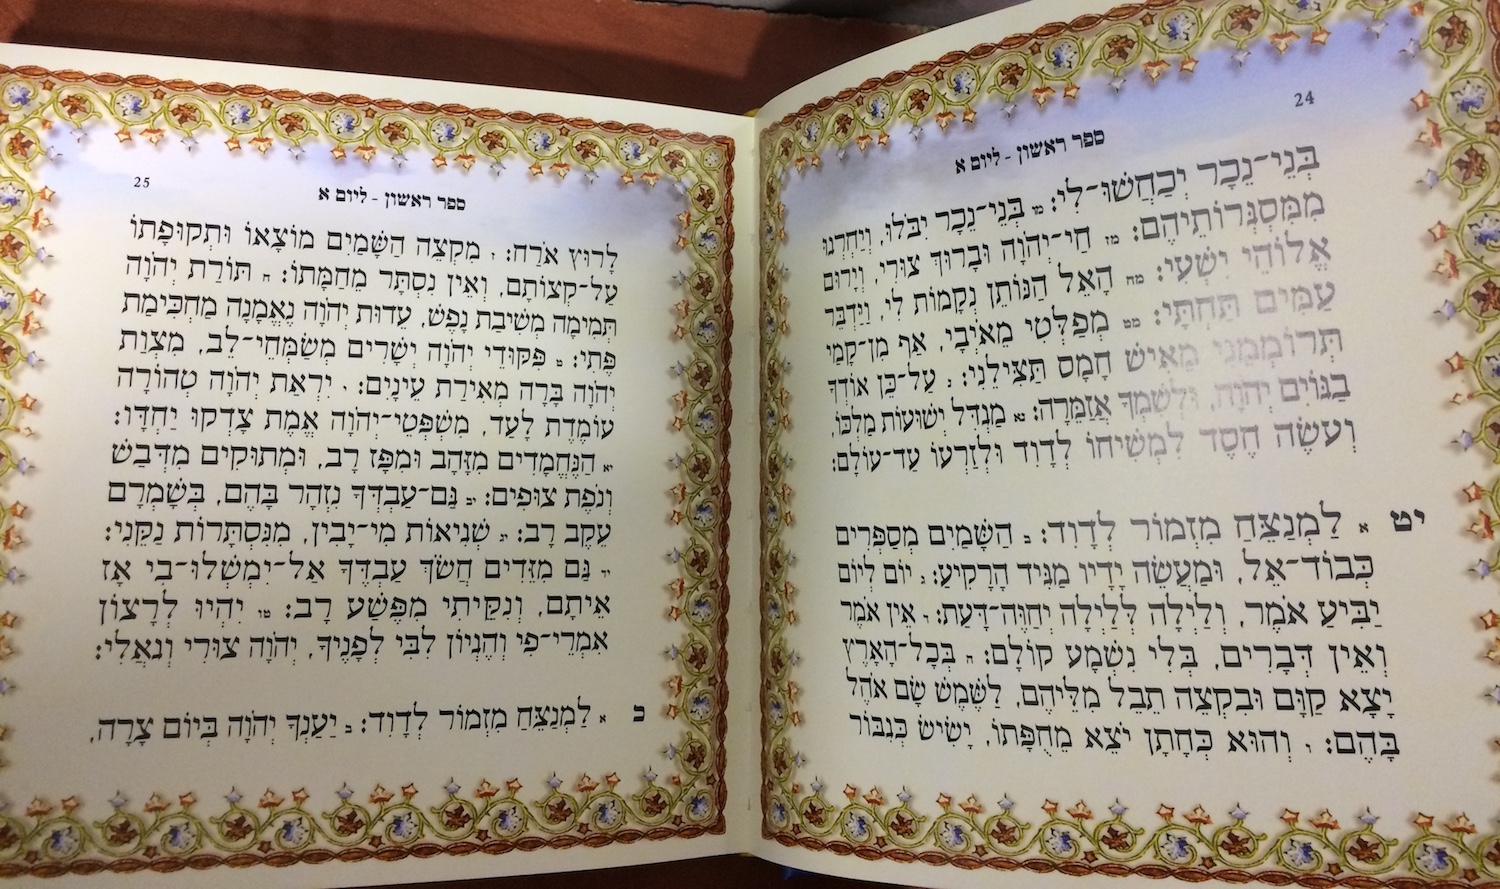 24
ספר ראשון - ליום א
בְּנֵי־נֵכָר יְכַחֲשׁוּ־לִי: מו בְּנֵי־נֵכָר יִבֹּלוּ, וְיַחְרְגוּ
מִמִּסְגְּרוֹתֵיהֶם: מז חַי־יְהֹוָה וּבָרוּךְ צוּרִי, וְיָרוּם
אֱלוֹהֵי יִשְׁעִי: מח הָאֵל הַנּוֹתֵן נְקָמוֹת לִי, וַיַּדְבֵּר
עַמִּים תַּחְתָּי: מט מְפַלְּטִי מֵאֹיְבָי, אַף מִן־קָמַי
תְּרוֹמְמֵנִי מֵאִישׁ חָמָס תַּצִּילֵנִי: נ עַל־כֵּן אוֹדְךָ
בַגּוֹיִם יְהֹוָה, וּלְשִׁמְךָ אֲזַמֵּרָה: נא מַגְדִּל יְשׁוּעוֹת מַלְכּוֹ,
וְעֹשֶׂה חֶסֶד לִמְשִׁיחוֹ לְדָוִד וּלְזַרְעוֹ עַד־עוֹלָם:
יט א לַמְנַצֵּחַ מִזְמוֹר לְדָוִד: ב הַשָּׁמַיִם מְסַפְּרִים
כְּבוֹד־אֵל, וּמַעֲשֵׂה יָדָיו מַגִּיד הָרָקִיעַ: ג יוֹם לְיוֹם
יַבִּיעַ אֹמֶר, וְלַיְלָה לְּלַיְלָה יְחַוֶּה־דָּעַת: ד אֵין אֹמֶר
וְאֵין דְּבָרִים, בְּלִי נִשְׁמָע קוֹלָם: ה בְּכָל־הָאָרֶץ
יָצָא קַוָּם וּבִקְצֵה תֵבֵל מִלֵּיהֶם, לַשֶּׁמֶשׁ שָׂם אֹהֶל
בָּהֶם: ו וְהוּא כְּחָתָן יֹצֵא מֵחֻפָּתוֹ, יָשִׂישׂ כְּגִבּוֹר
25
ספר ראשון - ליום א
לָרוּץ אֹרַח: ז מִקְצֵה הַשָּׁמַיִם מוֹצָאוֹ וּתְקוּפָתוֹ
עַל־קְצוֹתָם, וְאֵין נִסְתָּר מֵחַמָּתוֹ: ח תּוֹרַת יְהֹוָה
תְּמִימָה מְשִׁיבַת נָפֶשׁ, עֵדוּת יְהֹוָה נֶאֱמָנָה מַחְכִּימַת
פֶּתִי: ט פִּקּוּדֵי יְהֹוָה יְשָׁרִים מְשַׂמְּחֵי־לֵב, מִצְוַת
יְהֹוָה בָּרָה מְאִירַת עֵינָיִם: י יִרְאַת יְהֹוָה טְהוֹרָה
עוֹמֶדֶת לָעַד, מִשְׁפְּטֵי־יְהֹוָה אֱמֶת צָדְקוּ יַחְדָּו:
יא הַנֶּחֱמָדִים מִזָּהָב וּמִפַּז רָב, וּמְתוּקִים מִדְּבַשׁ
וְנֹפֶת צוּפִים: יב גַּם־עַבְדְּךָ נִזְהָר בָּהֶם, בְּשָׁמְרָם
עֵקֶב רָב: יג שְׁגִיאוֹת מִי־יָבִין, מִנִּסְתָּרוֹת נַקֵּנִי:
יד גַּם מִזֵּדִים חֲשֹׂךְ עַבְדֶּךָ אַל־יִמְשְׁלוּ־בִי אָז
אֵיתָם, וְנִקֵּיתִי מִפֶּשַׁע רָב: טו יִהְיוּ לְרָצוֹן
אִמְרֵי־פִי וְהֶגְיוֹן לִבִּי לְפָנֶיךָ, יְהֹוָה צוּרִי וְגֹאֲלִי:
כ א לַמְנַצֵּחַ מִזְמוֹר לְדָוִד: ב יַעַנְךָ יְהֹוָה בְּיוֹם צָרָה,